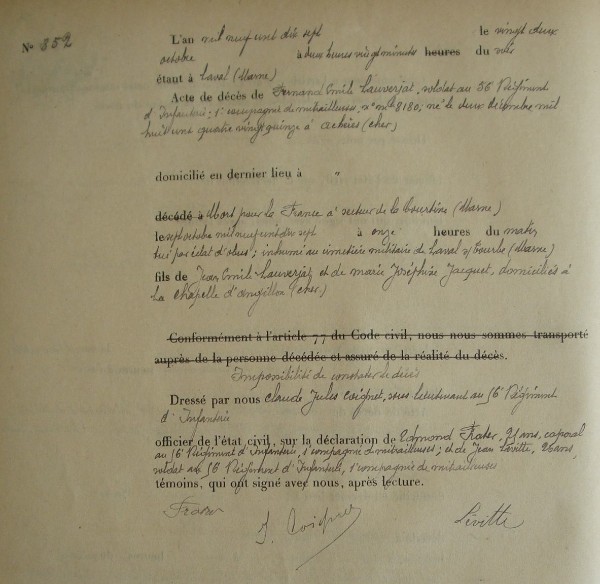 N° 852
L'an mil neuf cent dix sept le vingt deux
octobre à deux heures vingt minutes heures du soir
étant à Laval (Marne)
Acte de décès de Fernand Emile Lauverjat, soldat au 56 Régiment
d'Infanterie, 1e compagnie de mitrailleuses, n° mle 8180; né le deux décembre mil
huit cent quatre vingt quinze à achères (Cher)
domicilié en dernier lieu à "
décédé à Mort pour la France à secteur de la Courtine (Marne)
le sept octobre mil neuf cent dix sept à onze heures du matin
tué par éclat d'obus; inhumé au cimetière militaire de Laval s/ Tourbe (Marne)
fils de Jean Emile Lauverjat et de marie Joséphine Jacquet, domiciliés à
La Chapelle d'angillon (Cher)
Conformément à l'article 77 du Code civil, nous nous sommes transporté
auprès de la personne décédée et assuré de la réalité du décès.
Impossibilité de constater le décès
Dressé par nous Claude Jules Coignet, sous lieutenant au 56 Régiment
d'Infanterie
officier de l'état civil, sur la déclaration de Edmond Frater, 21 ans, caporal
au 56 Régiment d'Infanterie, 1e compagnie de mitrailleuses; et de Jean Lévitte, 26 ans,
soldat au 56 Régiment d'Infanterie, 1e compagnie de mitrailleuses
témoins, qui ont signé avec nous, après lecture.
Frater J. Coignet Lévitte